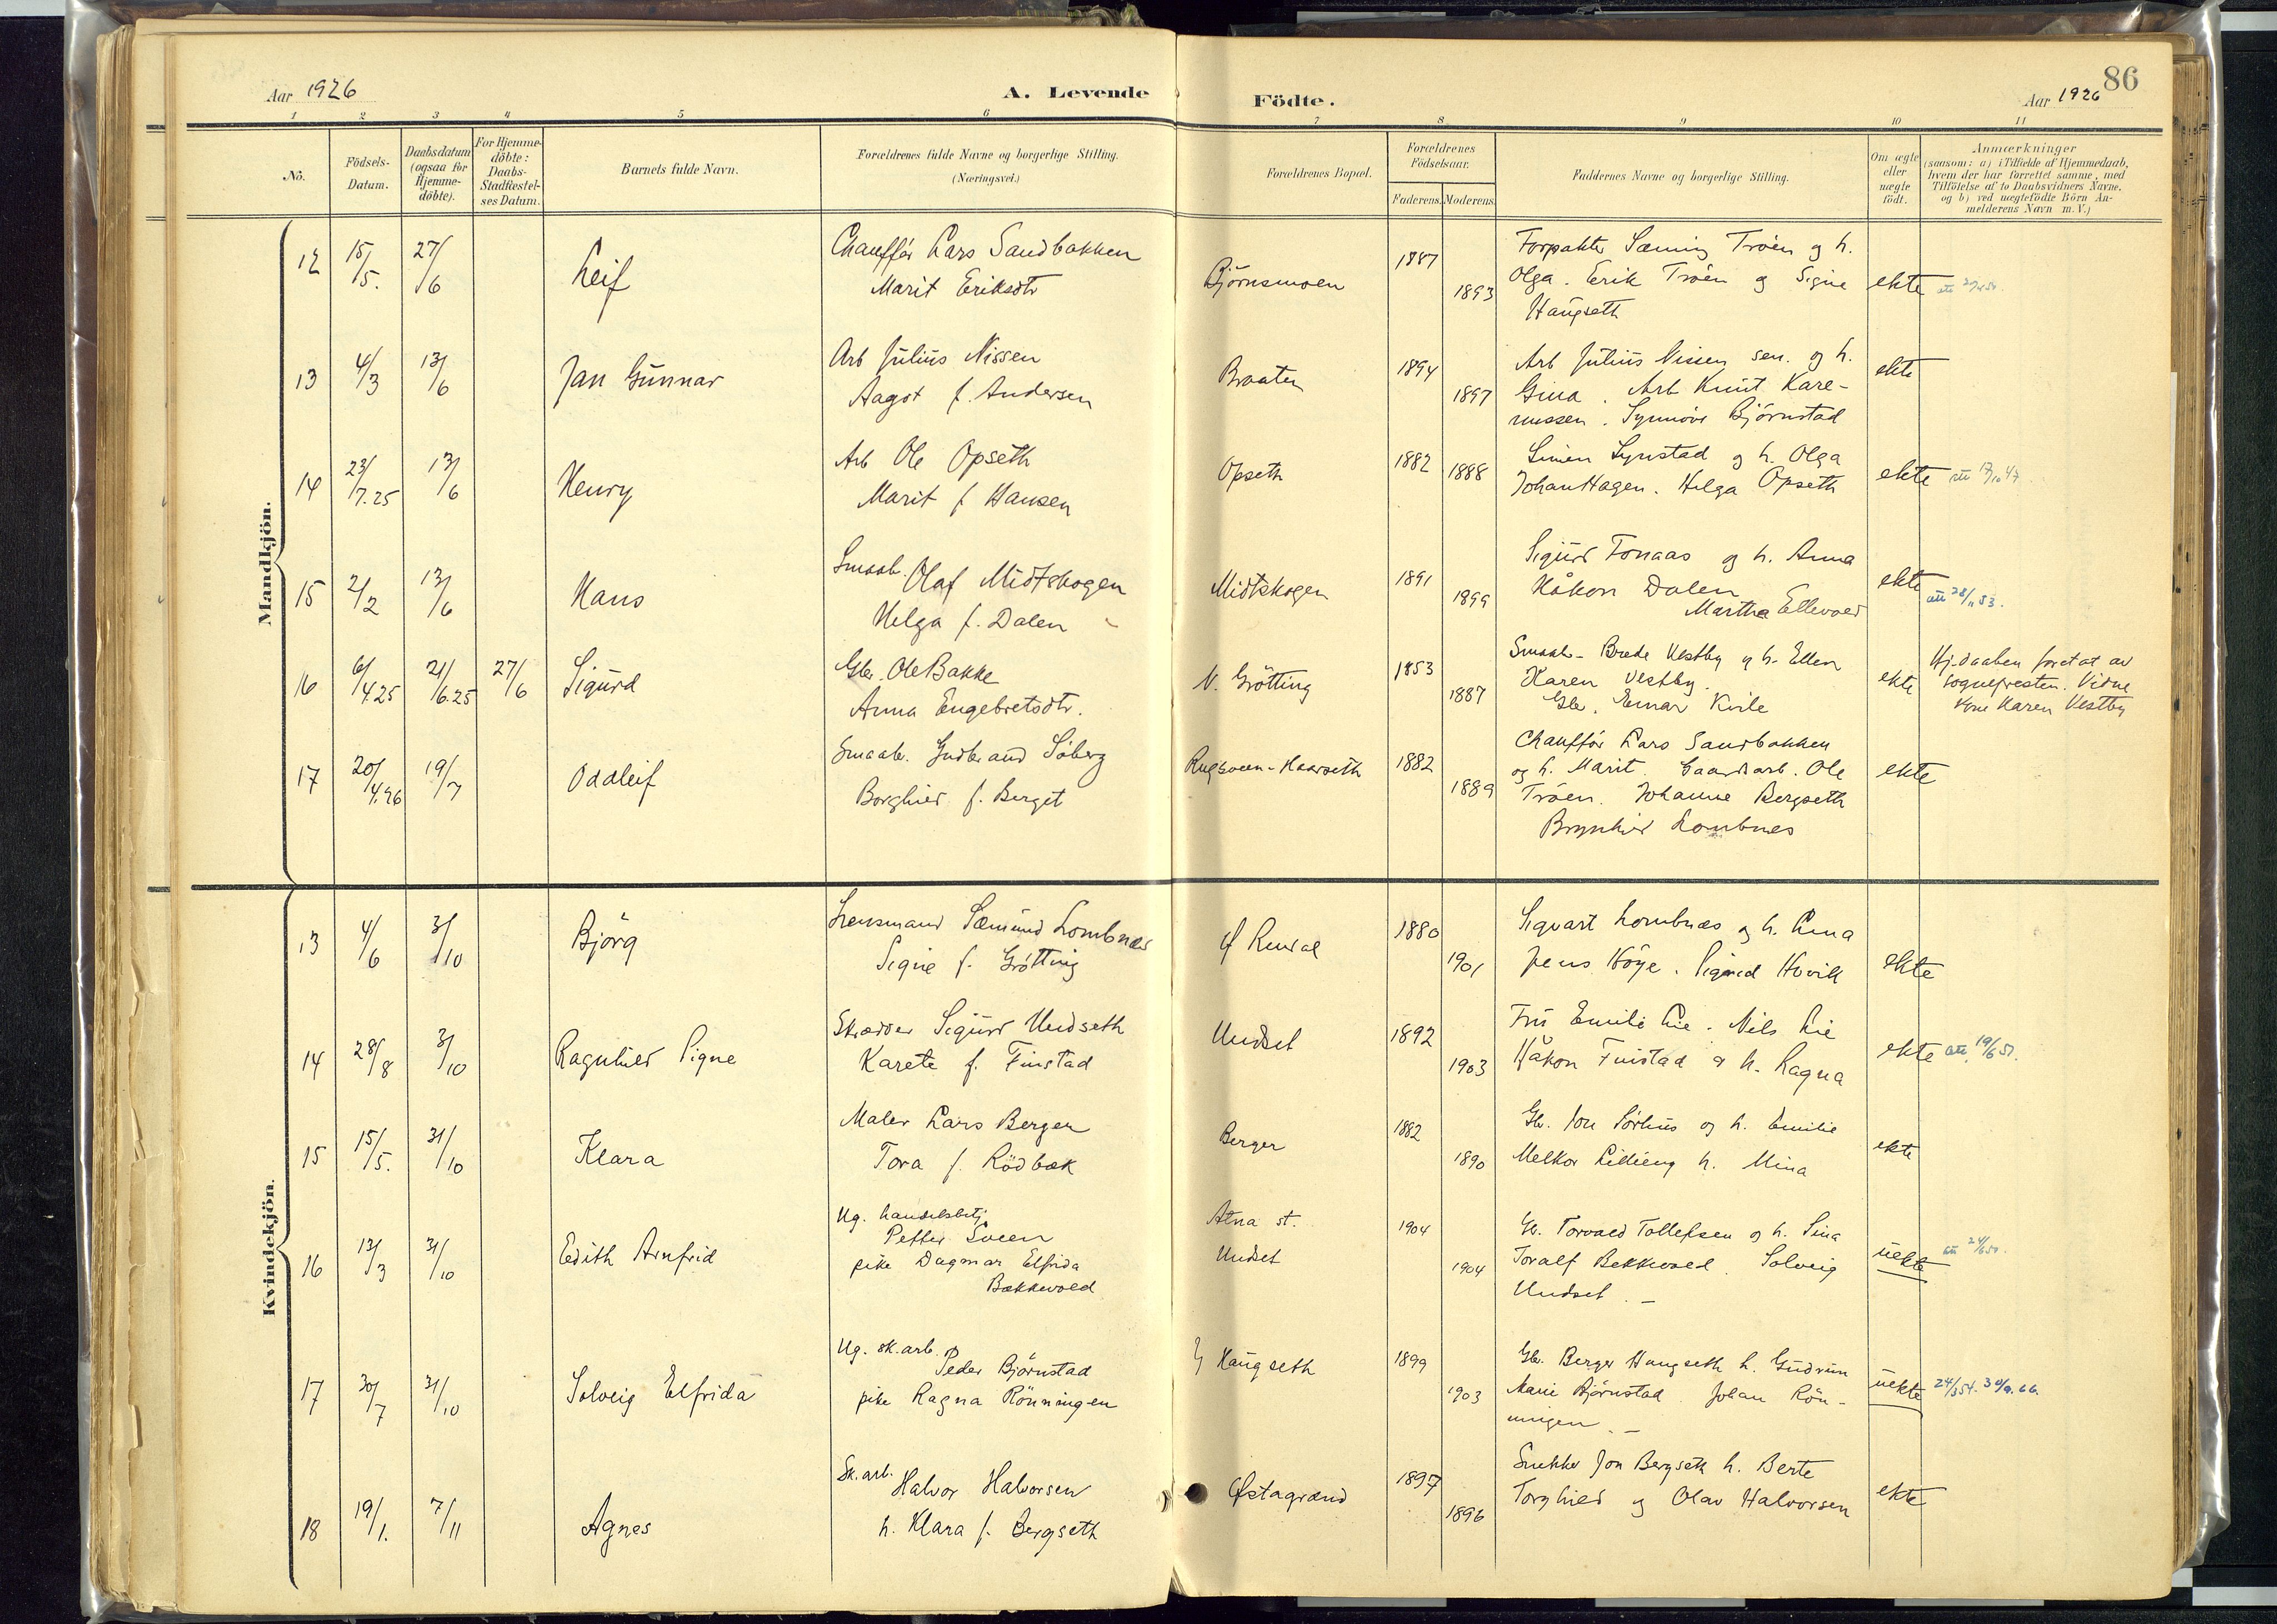 86
Aar 1926
A. Levende
Födte.
Aar 1926
1 2 3 4 5 6 7 8 9 10 11
No.
Födsels-
Datum.
Daabsdatum
(ogsaa for
Hjemme-
döbte).
For Hjemme-
döbte:
Daabs-
Stadfæstel-
ses Datum.
Barnets fulde Navn.
Forældrenes fulde Navne og borgerlige Stilling.
(Næringsvei.)
Forældrenes Bopæl.
Forældrenes
Födselsaar.
Faderens. Moderens.
Faddernes Navne og borgerlige Stilling.
Om ægte
eller
uægte
födt.
Anmærkninger
(saasom: a) i Tilfælde af Hjemmedaab,
hvem der har forrettet samme, med
Tilföielse af to Daabsvidners Navne.
og b) ved uægtefödte Börn An-
melderens Navn m. V.)
Mandkjön.
12 15/5. 27/6 Leif
Chaufför Lars Sandbakken
Marit Eriksdtr
Björnsmoen
1887
1893
Forpakter Sæming Tröen og h.
Olga. Erik Tröen og Signe
Haugseth
ekte
13 4/3 13/6 Jan Gunnar
Arb Julius Nissen
Aagot f. Andersen
Braaten
1894
1897
Arb Julius Nissen sen. og h.
Gina. Arb Knut Kare-
nussen. Synnöve Björnstad
ekte
14 23/7.25 13/6 Henry
Arb Ole Opseth
Marit f Hansen
Opseth
1882 1888
Simen Synstad og h. Olga
Johan Hagen. Helga Opseth
ekte att 17/10 47
15 2/2 13/6 Hans
Smaabr. Olaf Midtskogen
Helga f. Dalen
Midtskogen
1891
1899
Sigurd Fonaas og h. Anna
Håkon Dalen
Martha Ellevold
ekte
att 28/11 53.
16 6/4.25 21/6.25 27/6 Sigurd
Gbr. Ole Bakke
Anna Engebretsdtr.
N. Grötting
1853
1887
Smaabr. Brede Vestby og h. Ellen
Karen Vestby.
Gbr. Einar Kvile
ekte
Hj.daaben foretat av
sognepresten. Vidne
Karen Vestby
17 20/4.26 19/7 Oddleif
Smaabr. Gudbrand Söberg
Borghild f. Berget
Rugsveen-Haarseth
1882
1889
Chaufför Lars Sandbakken
og h. Marit. Gaardsarb. Ole
Tröen. Johanne Bergseth
Brynhild Lombnes
ekte
Kvindekjön.
13 4/6 3/10 Björg
Lensmand Sæmund Lombnæs
Signe f. Grötting
Ö Rendal
1880
1901
Sigvart Lombnæs og h. Lina
Jens Höye. Sigrid Hovik
ekte
14 28/8 3/10 Ragnhild Signe
Skrædder Sigurd Undseth
Karete f. Finstad
Undset
1892
1903
Fru Emilie Lie. Nils Lie
Håkon Finstad og h. Ragna
ekte att. 19/6 51.
15 15/5. 31/10 Klara
Maler Lars Berger
Tora f. Rödbæk
Berger
1882
1890
Gbr. Jon Sörhus og h. Emilie
Melkor Lilleeng h. Mina
ekte
16 13/3 31/10 Edith Arnfrid
Ug. handelsbetj.
Petter Sveen
pike Dagmar Elfrida
Bækkevold
Atna st.
Undset
1904
1904
Gb. Torvald Tollefsen og h. Lina
Toralf Bekkevold. Solveig
Undset. —
uekte att 24/6 50.
17 30/7 31/10 Solveig Elfrida
Ug. sk.arb.
Peder Björnstad
pike Ragna Rönningen
Y Haugseth
1899
1903
Gbr. Berger Haugseth h. Gudrun
Marie Björnstad. Johan Rön-
ningen. —
uekte 24/3 54. 30/9. 66.
18 19/1. 7/11 Agnes
Sk.arb.
Halvor Halvorsen
h. Klara f. Bergseth
Östagrend
1897
1896
Snekker Jon Bergseth h. Berte
Torghild og Olav Halvorsen
ekte